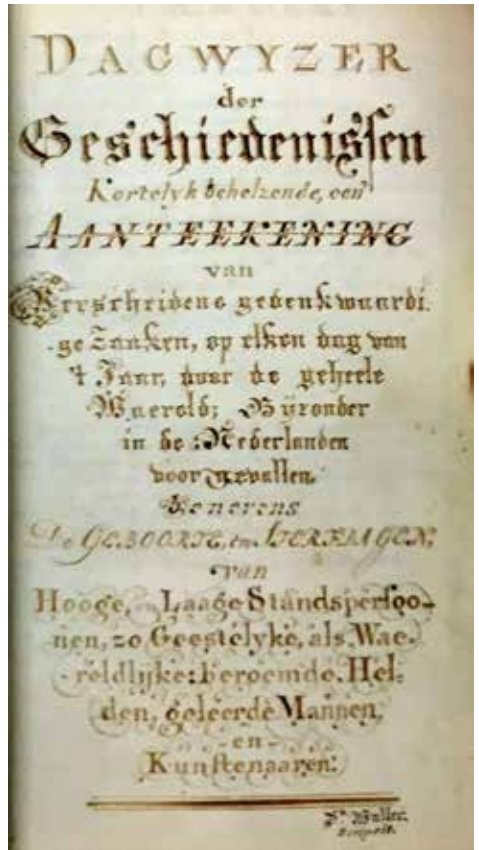 DAGWYZER
der
Geschiedenissen
Kortelyk behelzende, een
AANTEEKENING
van
Verscheidene gedenkwaardi
ge Zaaken, op elken dag van
't Jaar, door de geheele
Waereld; Byzonder
in de Nederlanden
voorgevallen.
Benevens
De GEBOORTE, en STERFDAGEN,
van
Hooge, en Laage Standspersoo-
nen, zo Geestelyke, als Wae-
reldlijke: beroemde Hel-
den, geleerde Mannen,
-en-
Kunstenaaren:
Waller.